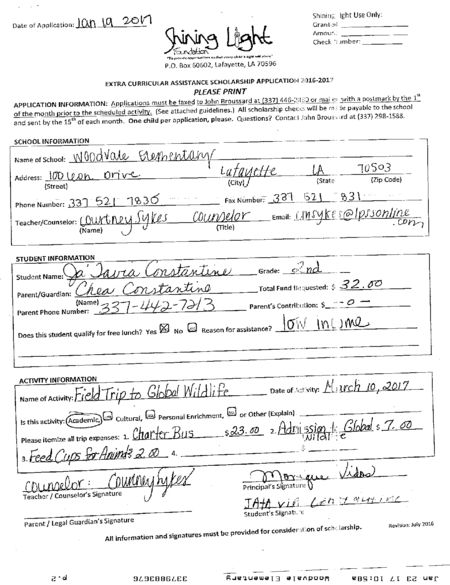 Date of Application: Jan 19 2017
Shining Light Use Only:
Shining Light
Foundation
P.O. Box 60602, Lafayette, LA 70596
EXTRA CURRICULAR ASSISTANCE SCHOLARSHIP APPLICATION 2016-2017
PLEASE PRINT
APPLICATION INFORMATION: Applications must be faxed to John Broussard at (337) 446-2480 or mailed with a postmark by the 1st
of the month prior to the scheduled activity. (See attached guidelines.) All scholarship checks will be made payable to the school
and sent by the 15th of each month. One child per application, please. Questions? Contact John Broussard at (337) 298-1588.
SCHOOL INFORMATION
Name of School: Woodvale Elementary
Address: 100 Leon Drive Lafayette LA 70503
(Street) (City) (State (Zip Code)
Phone Number: 337 521 7830 Fax Number: 337 521 831
Teacher/Counselor: Courtney Sykes Counselor Email: cmsykes@lpssonline.com
(Name) (Title)
STUDENT INFORMATION
Student Name: Ja'Javia Constantine Grade: 2nd
Parent/Guardian: Chea Constantine Total Fund Requested: $ 32.00
(Name)
Parent Phone Number: 337-442-7213 Parent's Contribution: $ -0-
Does this student qualify for free lunch? Yes ☒ No ☐ Reason for assistance? low income
ACTIVITY INFORMATION
Name of Activity: Field Trip to Global Wildlife Date of Activity: March 10, 2017
Is this activity: Academic, Cultural, Personal Enrichment, or Other (Explain)
Please itemize all trip expenses: 1. Charter Bus $23.00 2. Admission to Global $ 7.00
Wildlife
3. Feed Cups for Animals 2.00 4. $
Counselor: Courtney Sykes Monique Vidos
Teacher / Counselor's Signature Principal's Signature
Student's Signature
Parent / Legal Guardian's Signature
All information and signatures must be provided for consideration of scholarship.
Revision: July 2016
p.2 Woodvale Elementary